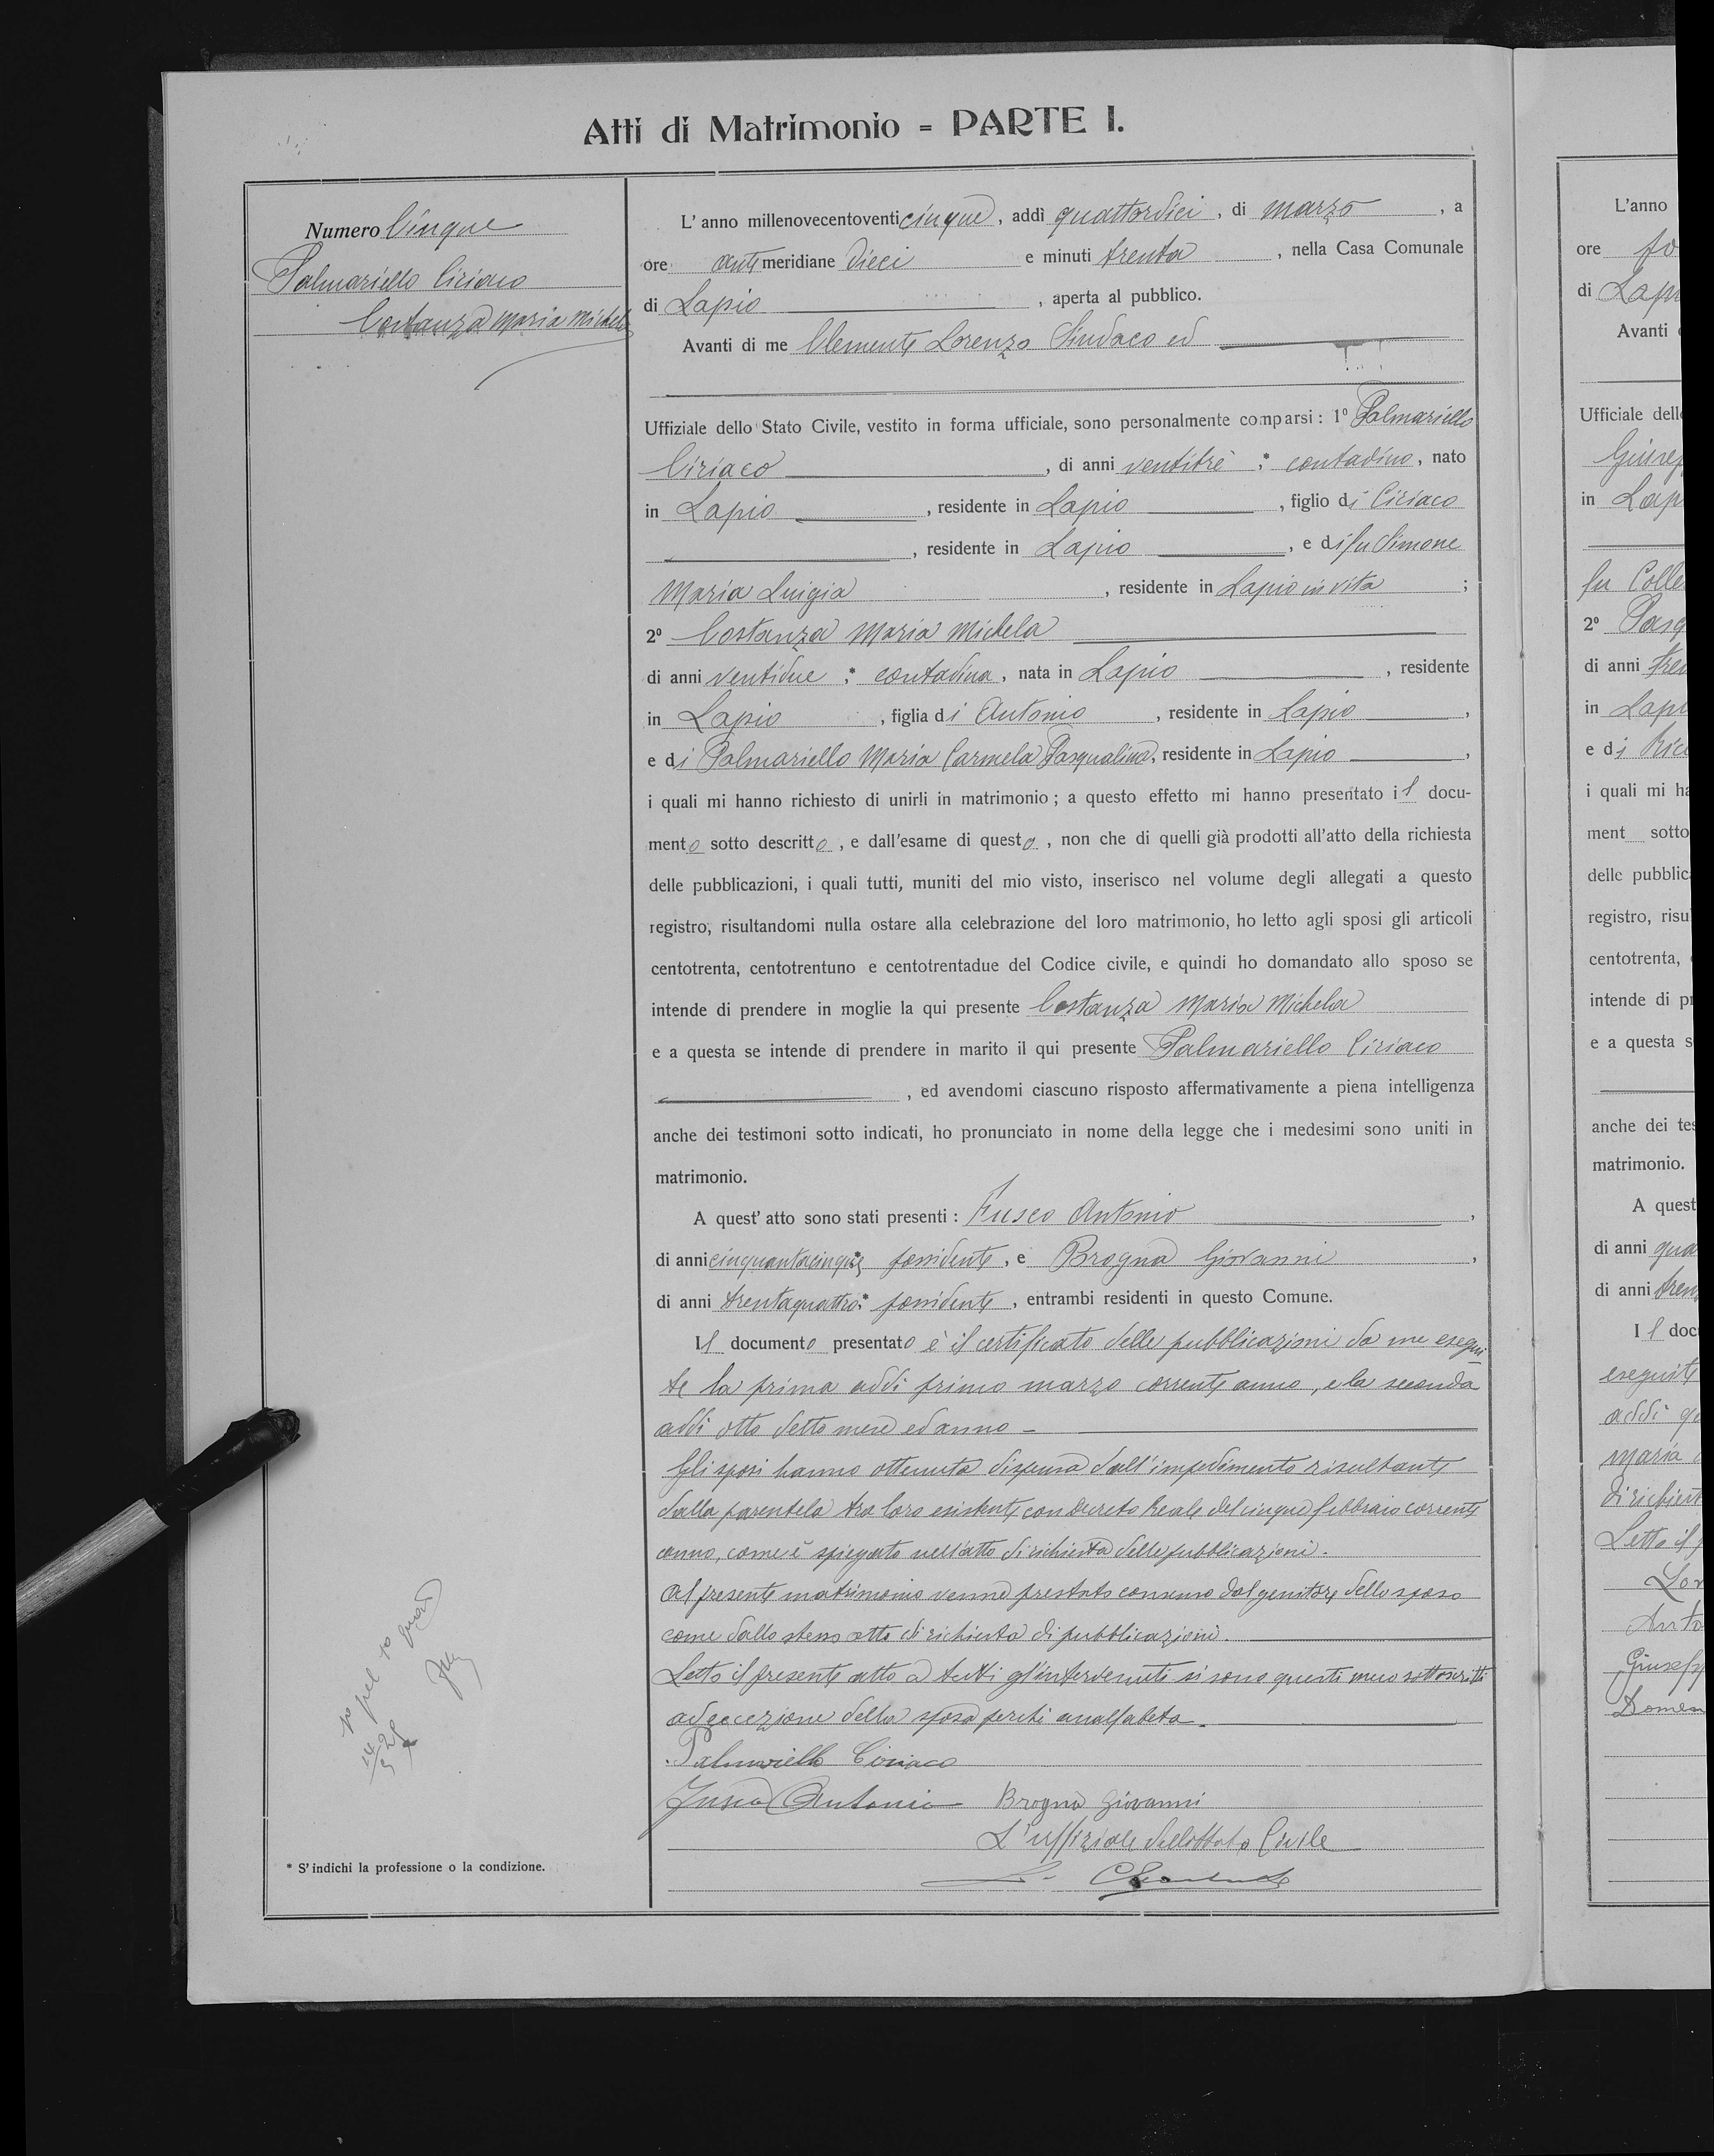 Atti di Matrimonio = PARTE I.
Numero Cinque
Palmariello Ciriaco
Costanza Maria Michela
L'anno millenovecentoventicinque, addì quattordici, di marzo, a
ore antimeridiane dieci e minuti trenta, nella Casa Comunale
di Lapio, aperta al pubblico.
Avanti di me Clemente Lorenzo Sindaco ed
Uffiziale dello Stato Civile, vestito in forma ufficiale, sono personalmente comparsi: 1º Palmariello
Ciriaco, di anni ventitrè;* contadino, nato
in Lapio, residente in Lapio, figlio di Ciriaco
, residente in Lapio, e di fu Simone
Maria Luigia, residente in Lapio in vita;
2º Costanza Maria Michela
di anni ventidue;* contadina, nata in Lapio, residente
in Lapio, figlia di Antonio, residente in Lapio,
e di Palmariello Maria Carmela Pasqualina, residente in Lapio,
i quali mi hanno richiesto di unirli in matrimonio; a questo effetto mi hanno presentato il docu-
mento sotto descritto, e dall'esame di questo, non che di quelli già prodotti all'atto della richiesta
delle pubblicazioni, i quali tutti, muniti del mio visto, inserisco nel volume degli allegati a questo
registro, risultandomi nulla ostare alla celebrazione del loro matrimonio, ho letto agli sposi gli articoli
centotrenta, centotrentuno e centotrentadue del Codice civile, e quindi ho domandato allo sposo se
intende di prendere in moglie la qui presente Costanza Maria Michela
e a questa se intende di prendere in marito il qui presente Palmariello Ciriaco
, ed avendomi ciascuno risposto affermativamente a piena intelligenza
anche dei testimoni sotto indicati, ho pronunciato in nome della legge che i medesimi sono uniti in
matrimonio.
A quest'atto sono stati presenti: Fusco Antonio,
di anni cinquantacinque* possidente, e Brogna Giovanni,
di anni trentaquattro;* possidente, entrambi residenti in questo Comune.
Il documento presentato è il certificato delle pubblicazioni da me esegui
te la prima addì primo marzo corrente anno, e la seconda
addì otto detto mese ed anno -
Gli sposi hanno ottenuta dispensa dall'impedimento risultante
dalla parentela tra loro esistente con Decreto Reale del cinque febbraio corrente
anno, come è spiegato nell'atto di richiesta delle pubblicazioni.
Al presente matrimonio venne prestato consenso dal genitore dello sposo
come dallo stesso atto di richiesta di pubblicazioni.
Letto il presente atto a tutti gl'intervenuti si sono questi meco sottoscritti
ad eccezione della sposa perchè analfabeta.
Palmariello Ciriaco
Fusco Antonio Brogna Giovanni
L'uffiziale dello Stato Civile
L. Clemente
* S'indichi la professione o la condizione.
L'anno
ore
di Lapi
Avanti
Ufficiale dell
Giusep
in Lap
fu Colle
2º Pasq
di anni tren
in Lapi
e di Ricc
i quali mi ha
ment sotto
delle pubblic
registro, risu
centotrenta,
intende di pr
e a questa s
anche dei tes
matrimonio.
A quest
di anni qua
di anni tren
Il doc
eseguite
addì
maria
di richiest
Letto il
Lor
Anto
Giusepp
Domen